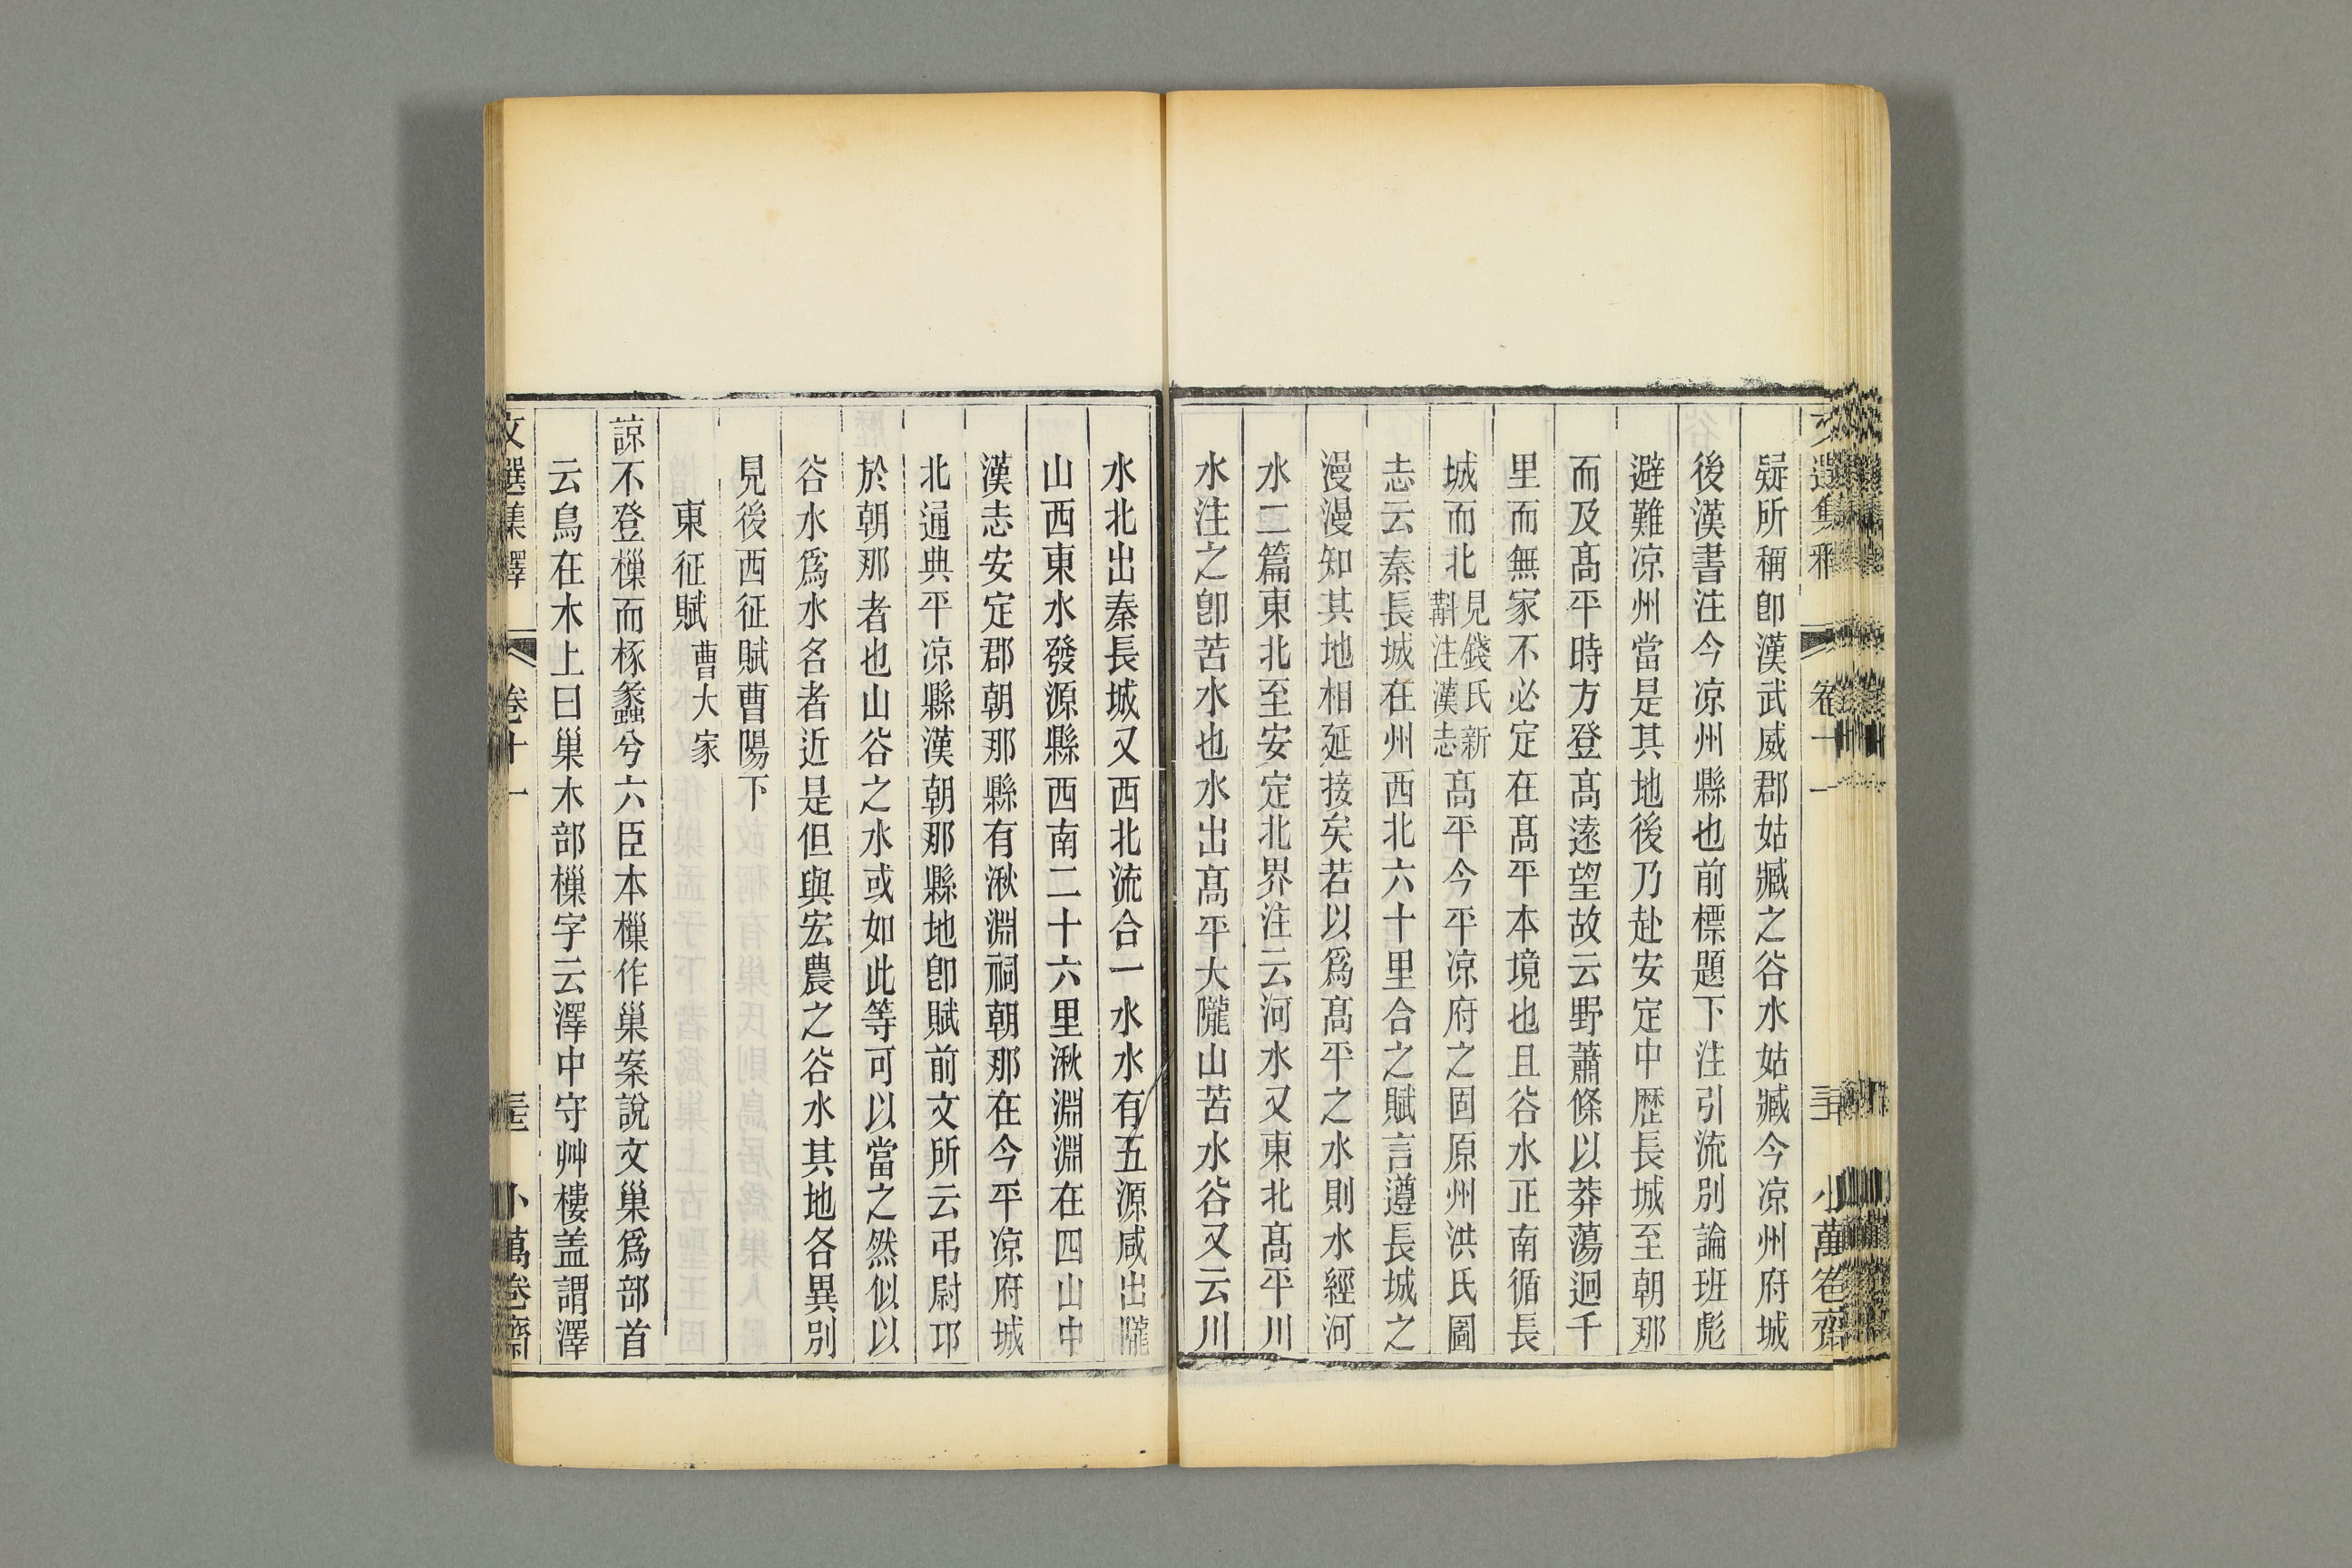 疑所稱卽漢武威郡姑臧之谷水姑臧今凉州府城
後漢書注今凉州縣也前標題下注引流別論班彪
避難凉州當是其地後乃赴安定中歴長城至朝那
而及髙平時方登髙逺望故云野蕭條以莽蕩迥千
里而無家不必定在髙平本境也且谷水正南循長
城而北見錢氏新斠注漢志髙平今平凉府之固原州洪氏圖
志云秦長城在州西北六十里合之賦言遵長城之
漫漫知其地相延接矣若以爲髙平之水則水經河
水二篇東北至安定北界注云河水又東北髙平川
水注之卽苦水也水出髙平大隴山苦水谷又云川
水北出秦長城又西北流合一水水有五源咸出隴
山西東水發源縣西南二十六里湫淵淵在四山中
漢志安定郡朝那縣有湫淵祠朝那在今平凉府城
北通典平凉縣漢朝那縣地卽賦前文所云弔尉邛
於朝那者也山谷之水或如此等可以當之然似以
谷水爲水名者近是但與宏農之谷水其地各異別
見後西征賦曹陽下
東征賦 曹大家
諒不登樔而椓蠡兮六臣本樔作巢案說文巢爲部首
云鳥在木上曰巢木部樔字云澤中守艸樓盖謂澤
文選集釋 卷十一 小萬卷齋